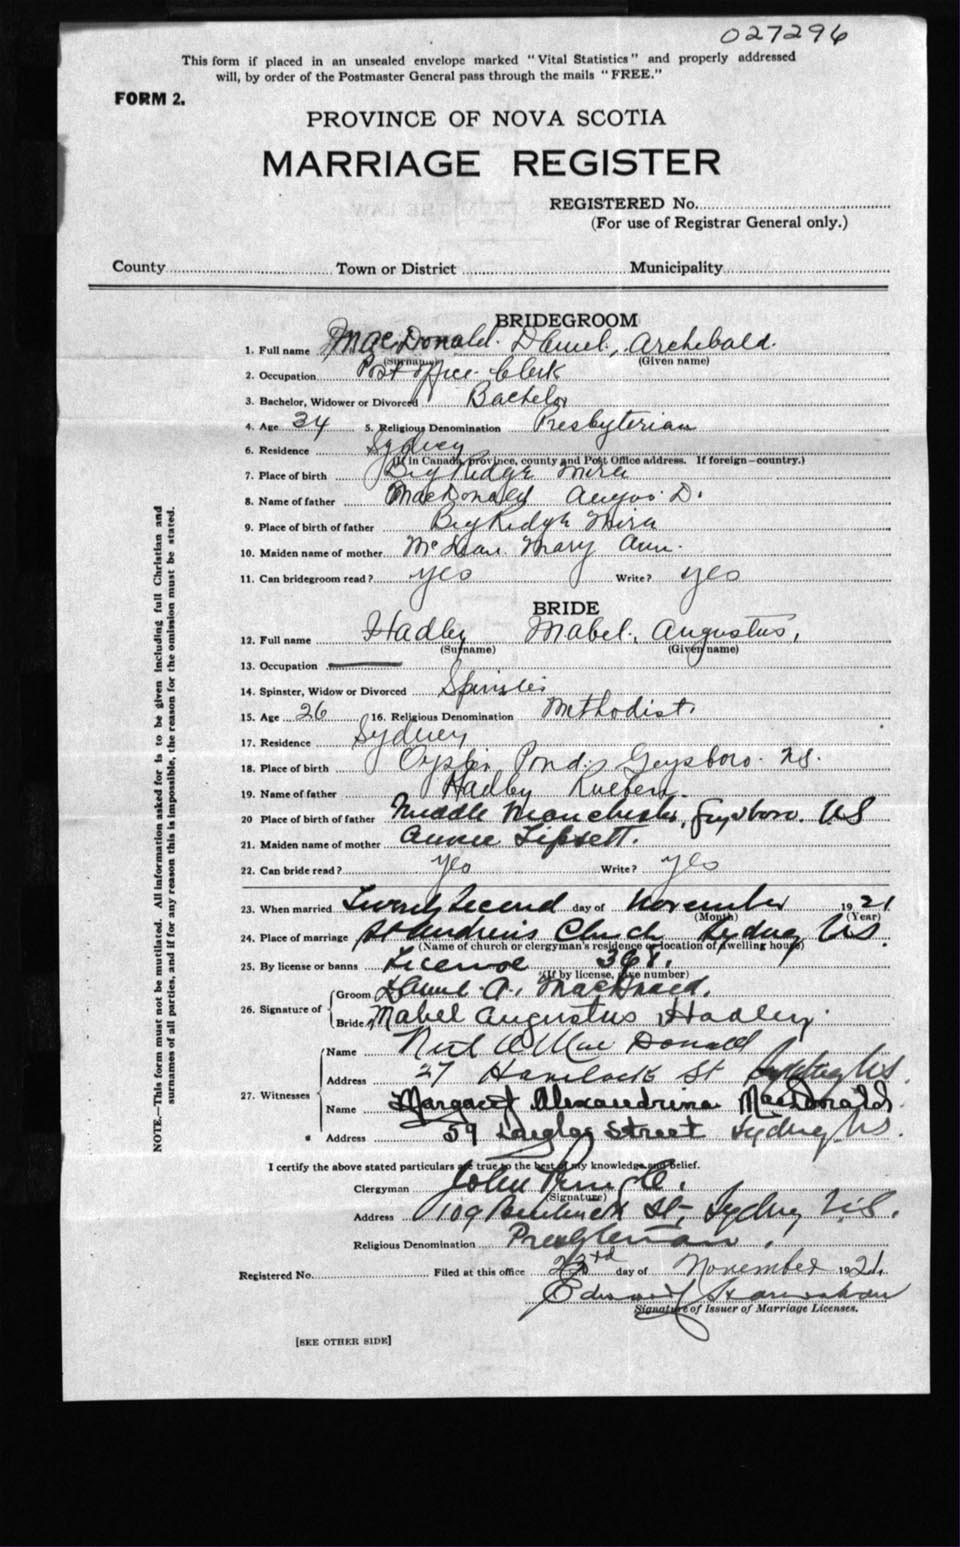 027296
This form if placed in an unsealed envelope marked "Vital Statistics" and properly addressed
will, by order of the Postmaster General pass through the mails "FREE."
FORM 2.
PROVINCE OF NOVA SCOTIA
MARRIAGE REGISTER
REGISTERED No.
(For use of Registrar General only.)
County Town or District Municipality
BRIDEGROOM
1. Full name MacDonald. Daniel, Archibald.
(Surname) (Given name)
2. Occupation Post office Clerk
3. Bachelor, Widower or Divorced Bachelor
4. Age 34 5. Religious Denomination Presbyterian
6. Residence Sydney
(If in Canada, province, county and Post Office address. If foreign—country.)
7. Place of birth Big Ridge Mira
8. Name of father MacDonald Angus D.
9. Place of birth of father Big Ridge Mira
10. Maiden name of mother Mary Ann.
11. Can bridegroom read? yes Write? yes
BRIDE
12. Full name Hadley Mabel, Augustus,
(Surname) (Given name)
13. Occupation
14. Spinster, Widow or Divorced Spinster
15. Age 26 16. Religious Denomination Methodist.
17. Residence Sydney
18. Place of birth Oyster Ponds Geysboro. N.S.
19. Name of father Hadley
20 Place of birth of father Middle Manchester, Guysboro. NS
21. Maiden name of mother Annie Lipsett.
22. Can bride read? yes Write? yes
23. When married Twenty Second day of November 1921
(Month) (Year)
24. Place of marriage St Andrews Church Sydney NS.
(Name of church or clergyman's residence or location of dwelling house)
25. By license or banns License
(If by license, give number)
26. Signature of Groom Daniel A. MacDonald.
Bride Mabel Augustus Hadley.
27. Witnesses
Name MacDonald
Address 27 Havelock St Sydney NS.
Name Margaret Alexandrina MacDonald.
Address 59 Douglas Street Sydney NS.
I certify the above stated particulars are true to the best of my knowledge and belief.
Clergyman John
(Signature)
Address 109 St, Sydney N.S.
Religious Denomination Presbyterian.
Registered No. Filed at this office 23rd day of November 1921.
Signature of Issuer of Marriage Licenses.
[SEE OTHER SIDE]
NOTE.—This form must not be mutilated. All information asked for is to be given including full Christian and
surnames of all parties, and if for any reason this is impossible, the reason for the omission must be stated.